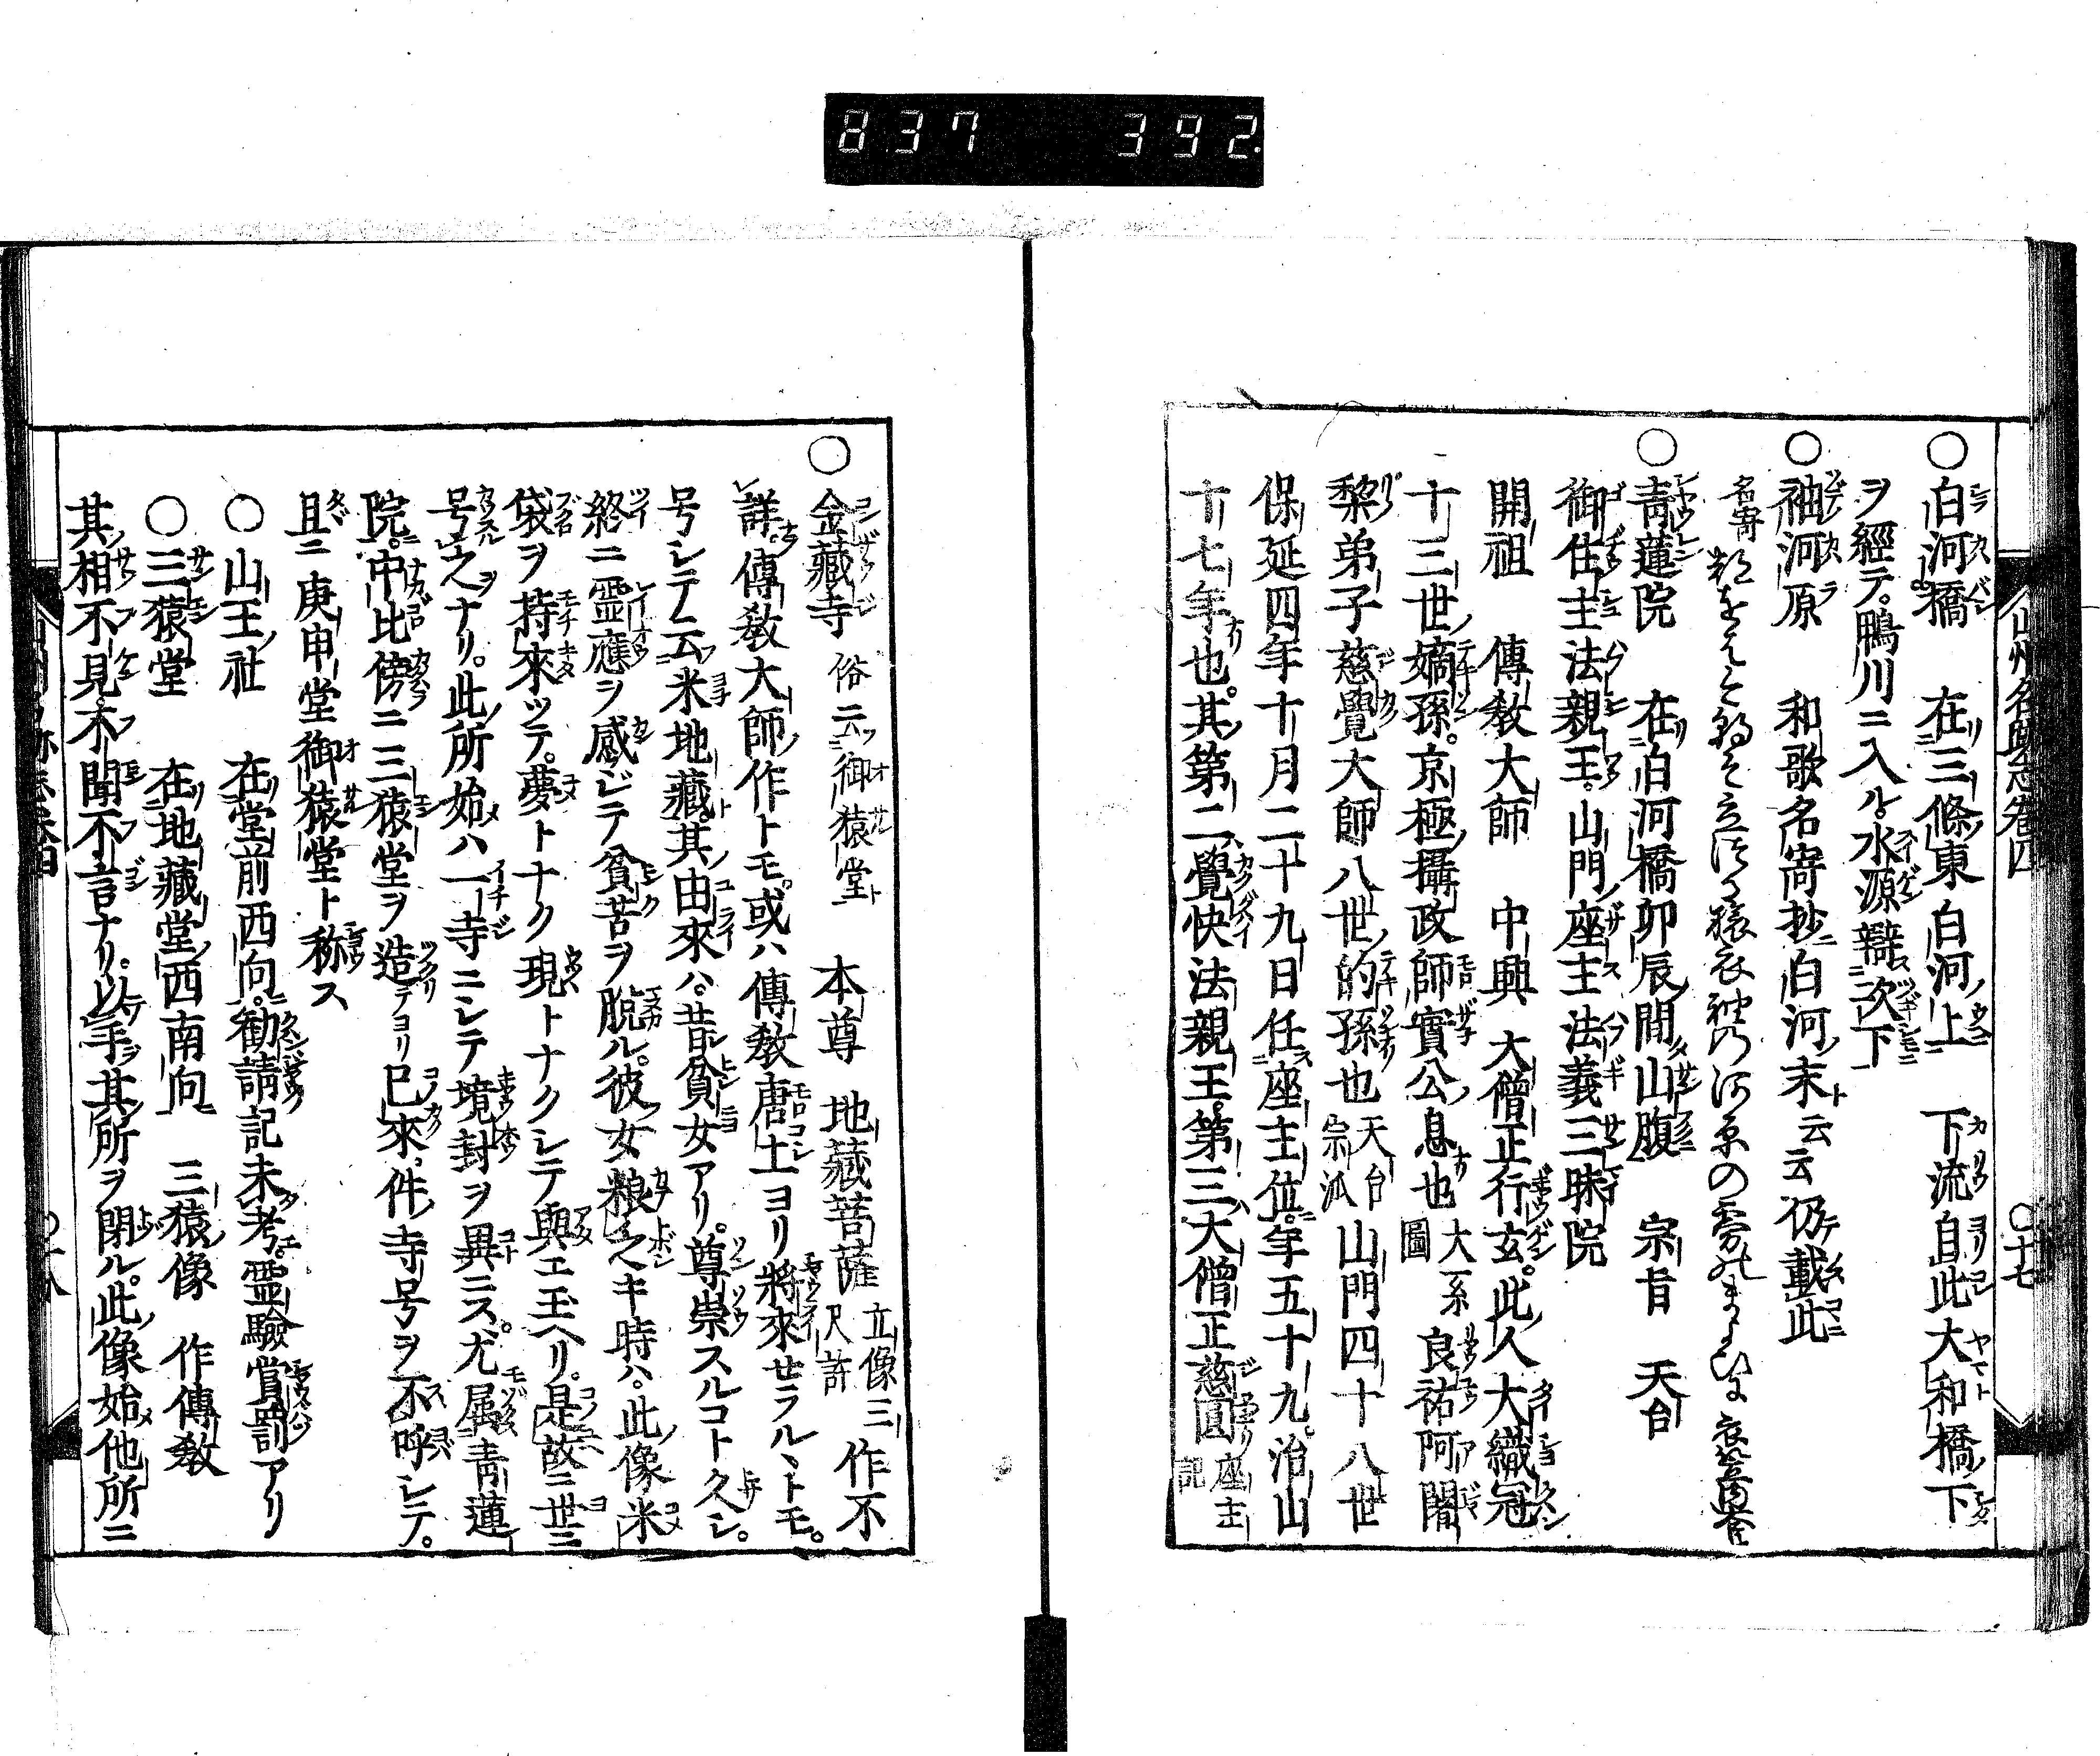 837 392
山州名跡志巻四
○十七
○白河橋 在三條東白河上 下流自此大和橋下
ヲ經テ鴨川ニ入ル水源辯次下
○袖河原 和歌名寄抄ニ白河ノ末ト云云仍載此
名寄
○青蓮院 在白河橋卯辰間山腹 宗旨 天台
御住主法親王山門ノ座主法義三昧院
開祖 傳教大師 中興 大僧正行玄此人大織冠
十三世ノ嫡孫京極攝政師實公ノ息也大系圖良祐阿闍
黎弟子慈覺大師八世ノ的孫也天台宗派山門四十八世
保延四年十月二十九日任座主位年五十九治山
十七年也其第二覺快法親王第三大僧正慈圓座主記
○金藏寺 俗云御猿堂 本尊 地藏菩薩立像三尺許 作不
詳傳教大師ノ作トモ或ハ傳教唐土ヨリ將來セラルヽトモ
号シテ云米地藏ト其由來ハ昔シ貧女アリ尊崇スルコト久シ
終ニ霊應ヲ感ジテ貧苦ヲ脱ル彼女粮乏キ時ハ此像米
袋ヲ持來ツテ夢トナク現トナクシテ與エ玉ヘリ是故ニ世ニ
号之ナリ此所始メハ一寺ニシテ境封ヲ異ニス尤属青蓮
院中比傍ニ三猿堂ヲ造テヨリ已來件寺号ヲ不呼シテ
且ニ庚申堂御猿堂ト称ス
○山王ノ社 在堂前西向勸請記未考霊驗賞罰アリ
○三猿堂 在地藏堂ノ西南向 三猿像 作傳教
其相不見不聞不言ナリ以手其所ヲ閉ル此像始メ他所ニ